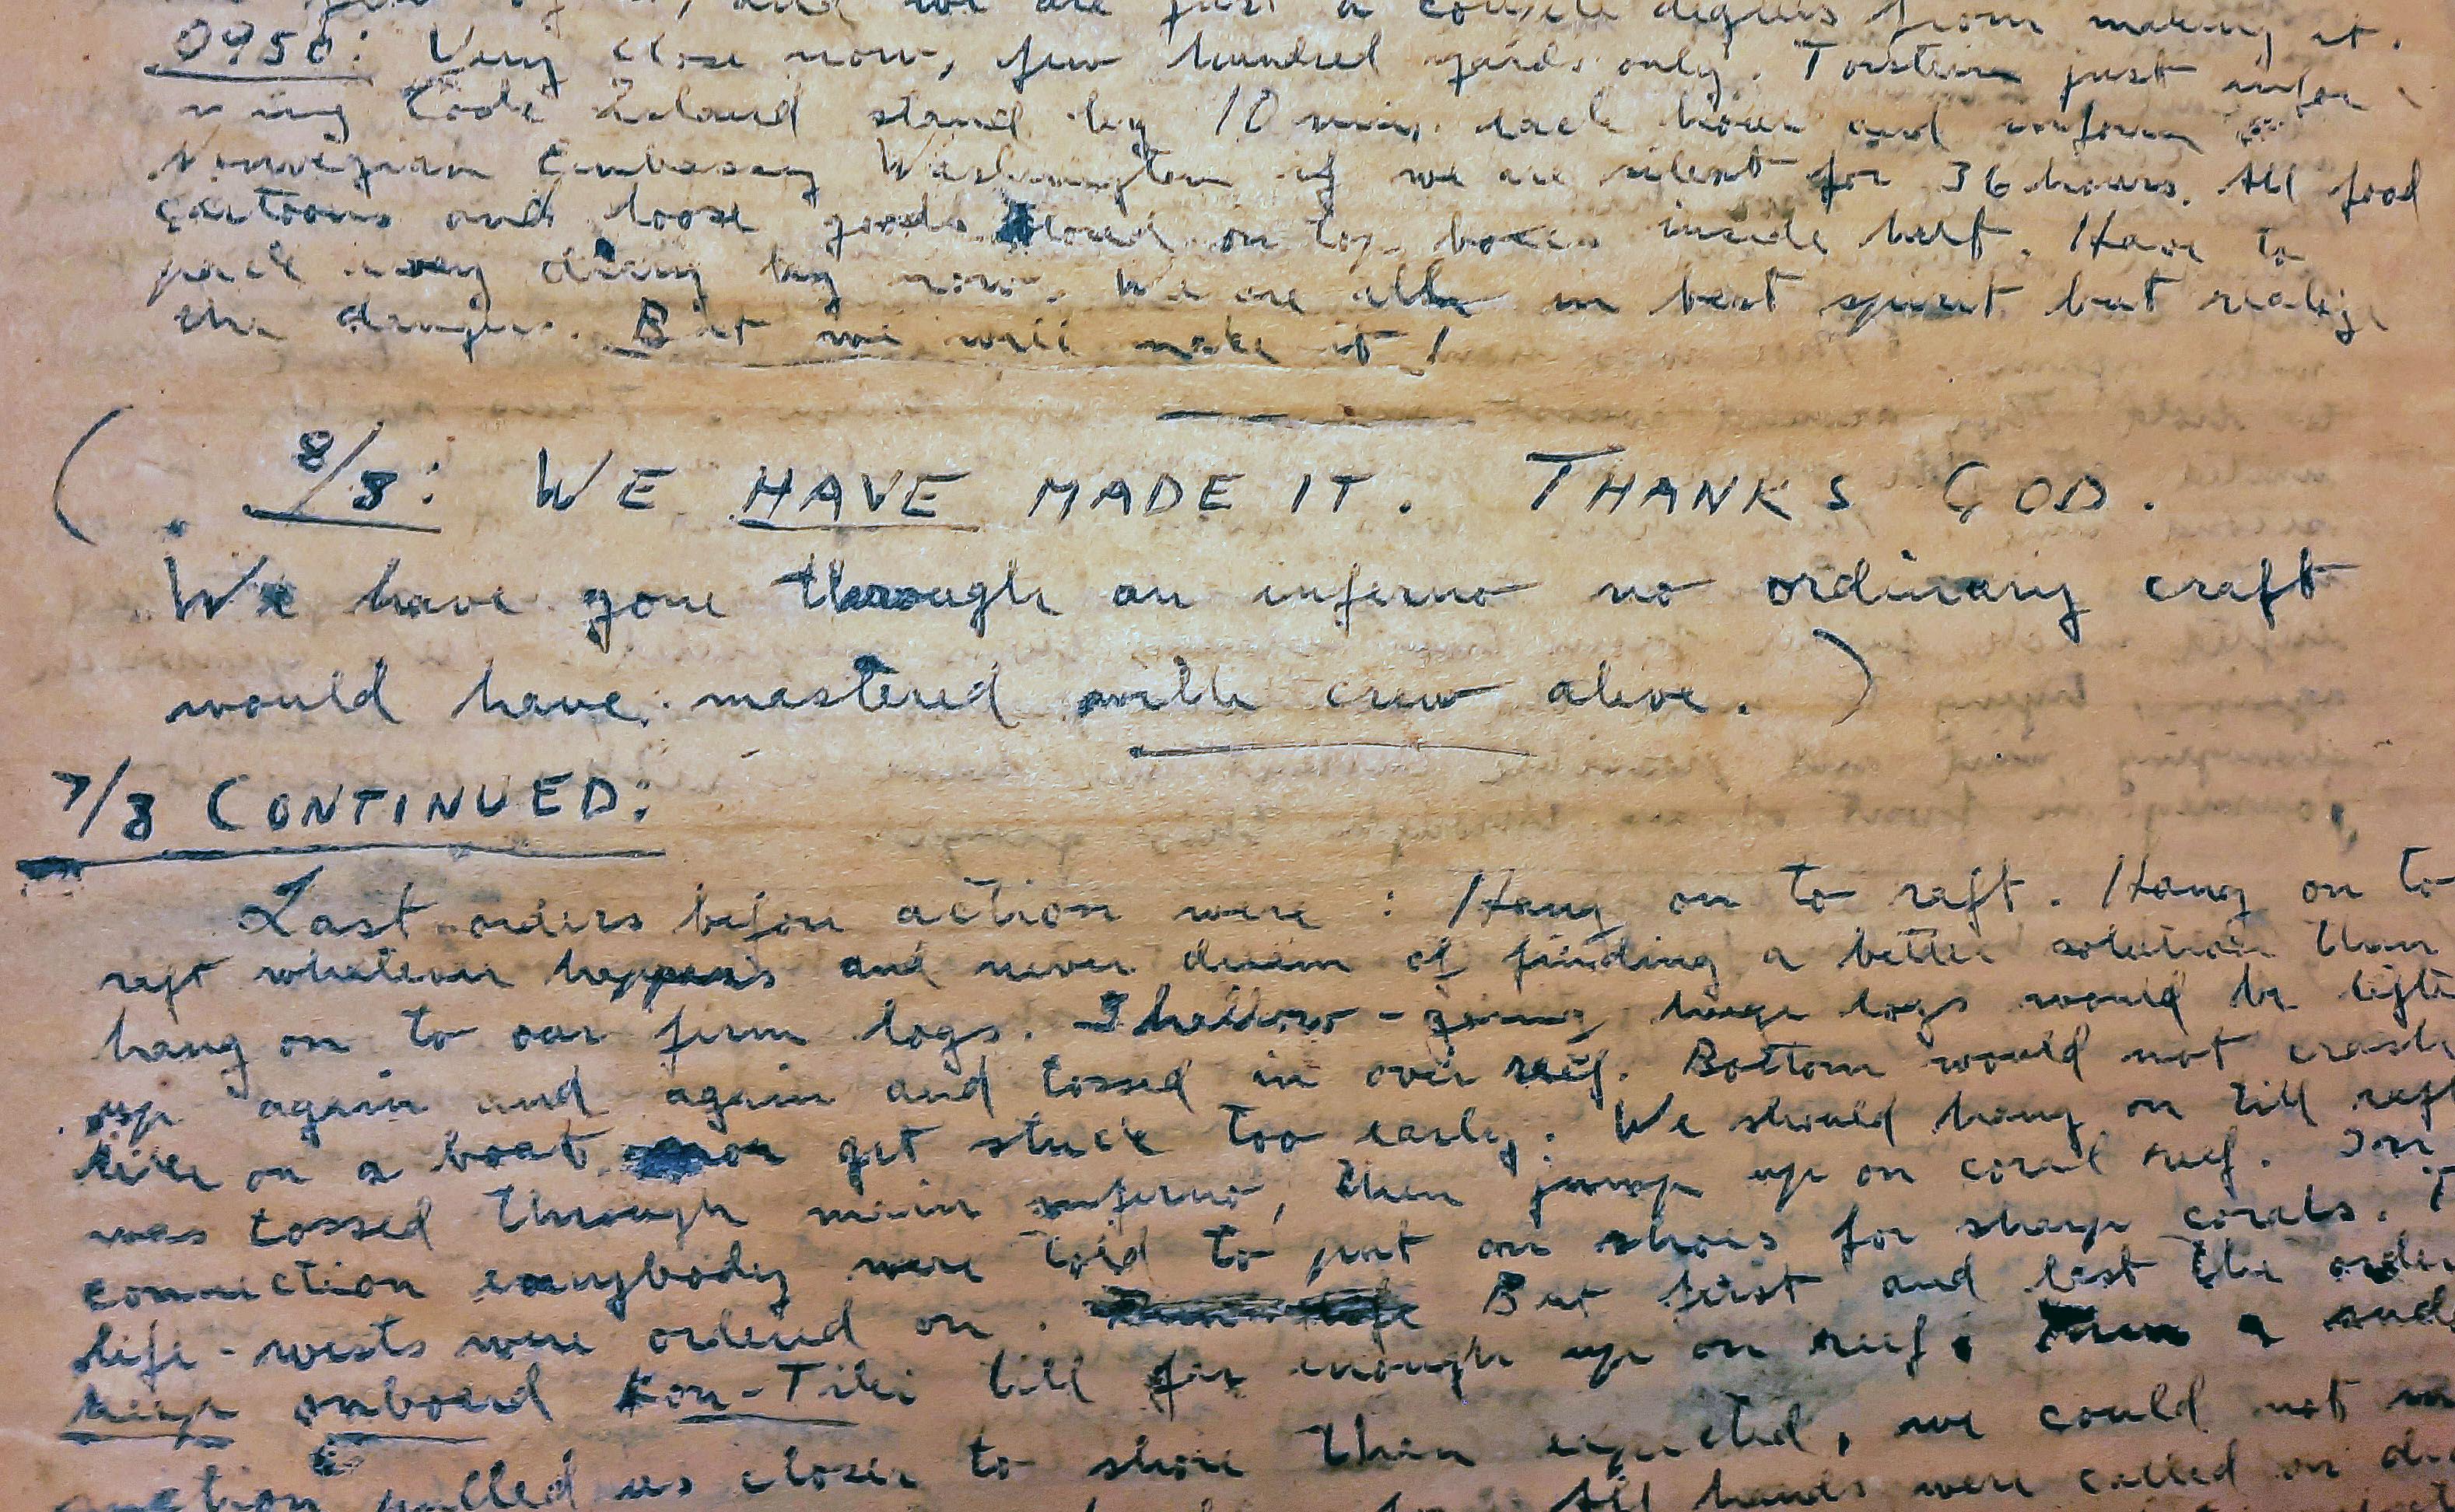 and we are just a couple degrees from making it.
0950: Very close now, few hundred yards only. Torstein just infor-
ming Cook Island stand by 10 min. each hour and inform
Norwegian Embassy Washington if we are silent for 36 hours. All food
cartoons and loose goods stored on top boxes inside hut. Have to
pack away diary log now. We are all in best spirit but realize
the danger. But we will make it!
( 8/8: WE HAVE MADE IT. THANKS GOD.
We have gone through an inferno no ordinary craft
would have mastered with crew alive. )
7/8 CONTINUED:
Last orders before action were: Hang on to raft. Hang on to
raft whatever happens and never dream of finding a better solution than
hang on to our firm logs. Shallow-going huge logs would be lifte
up again and again and tossed in over reef. Bottom would not crash
like on a boat nor get stuck too early. We should hang on till raft
was tossed through main inferno, then jump up on coral reef. In
connection everybody were told to put on shoes for sharp corals.
life-wests were ordered on. But first and last the order
keep onboard Kon-Tiki till far enough up on reef.
pulled us closer to shore than expected, we could not
All hands were called on